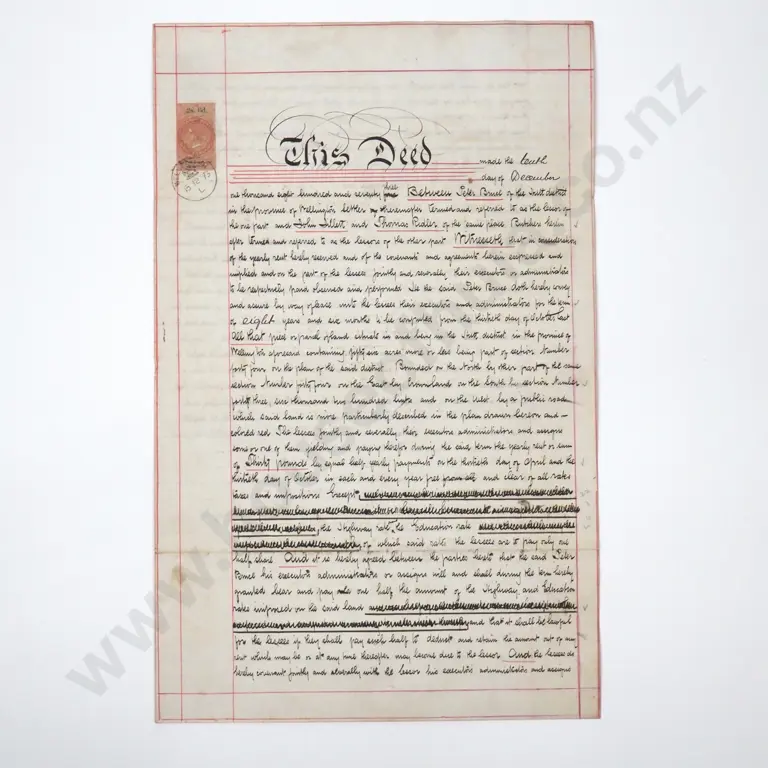 This Deed made the tenth
day of December
one thousand eight hundred and seventy three Between Peter Bruce of the Hutt district
in the province of Wellington Settler hereinafter termed and referred to as the lessor of
the one part and John Sillett and Thomas Ridler of the same place Butchers herein
after termed and referred to as the lessees of the other part Witnesseth that in consideration
of the yearly rent hereby reserved and of the covenants and agreements herein expressed and
implied and on the part of the lessees jointly and severally their executors or administrators
to be respectively paid observed and performed He the said Peter Bruce doth hereby convey
and assure by way of lease unto the lessees their executors and administrators for the term
of eight years and six months to be computed from the thirtieth day of October last
All that piece or parcel of land situate in and being in the Hutt district in the province of
Wellington aforesaid containing fifty six acres more or less being part of section Number
forty four on the plan of the said district Bounded on the North by other part of the same
section Number forty four on the East by Crownland on the South by section Number
forty three, six thousand six hundred links and on the West by a public road
which said land is more particularly described in the plan drawn hereon and
colored red The lessees jointly and severally, their executors administrators and assigns
some or one of them yielding and paying therefor during the said term the yearly rent or sum
of Thirty pounds by equal half yearly payments on the thirtieth day of April and the
thirtieth day of October in each and every year free from all and clear of all rates
taxes and impositions Except
the Highway rate, the Education rate
of which said rates the lessees are to pay only one
half share And it is hereby agreed between the parties hereto that he the said Peter
Bruce his executors administrators or assigns will and shall during the term hereby
granted bear and pay one half the amount of the Highway and Education
rates imposed on the said land
and that it shall be lawful
for the lessees if they shall pay such half to deduct and retain the amount out of any
rent which may be or at any time thereafter may become due to the lessor And the lessees do
hereby covenant jointly and severally with the lessor his executors administrators and assigns